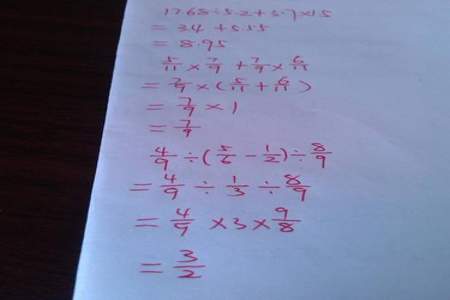 17.68÷5.2+3.7×1.5
= 3.4 + 5.55
= 8.95
5/11 × 7/9 + 7/9 × 6/11
= 7/9 × (5/11 + 6/11)
= 7/9 × 1
= 7/9
4/9 ÷ (5/6 - 1/2) ÷ 8/9
= 4/9 ÷ 1/3 ÷ 8/9
= 4/9 × 3 × 9/8
= 3/2